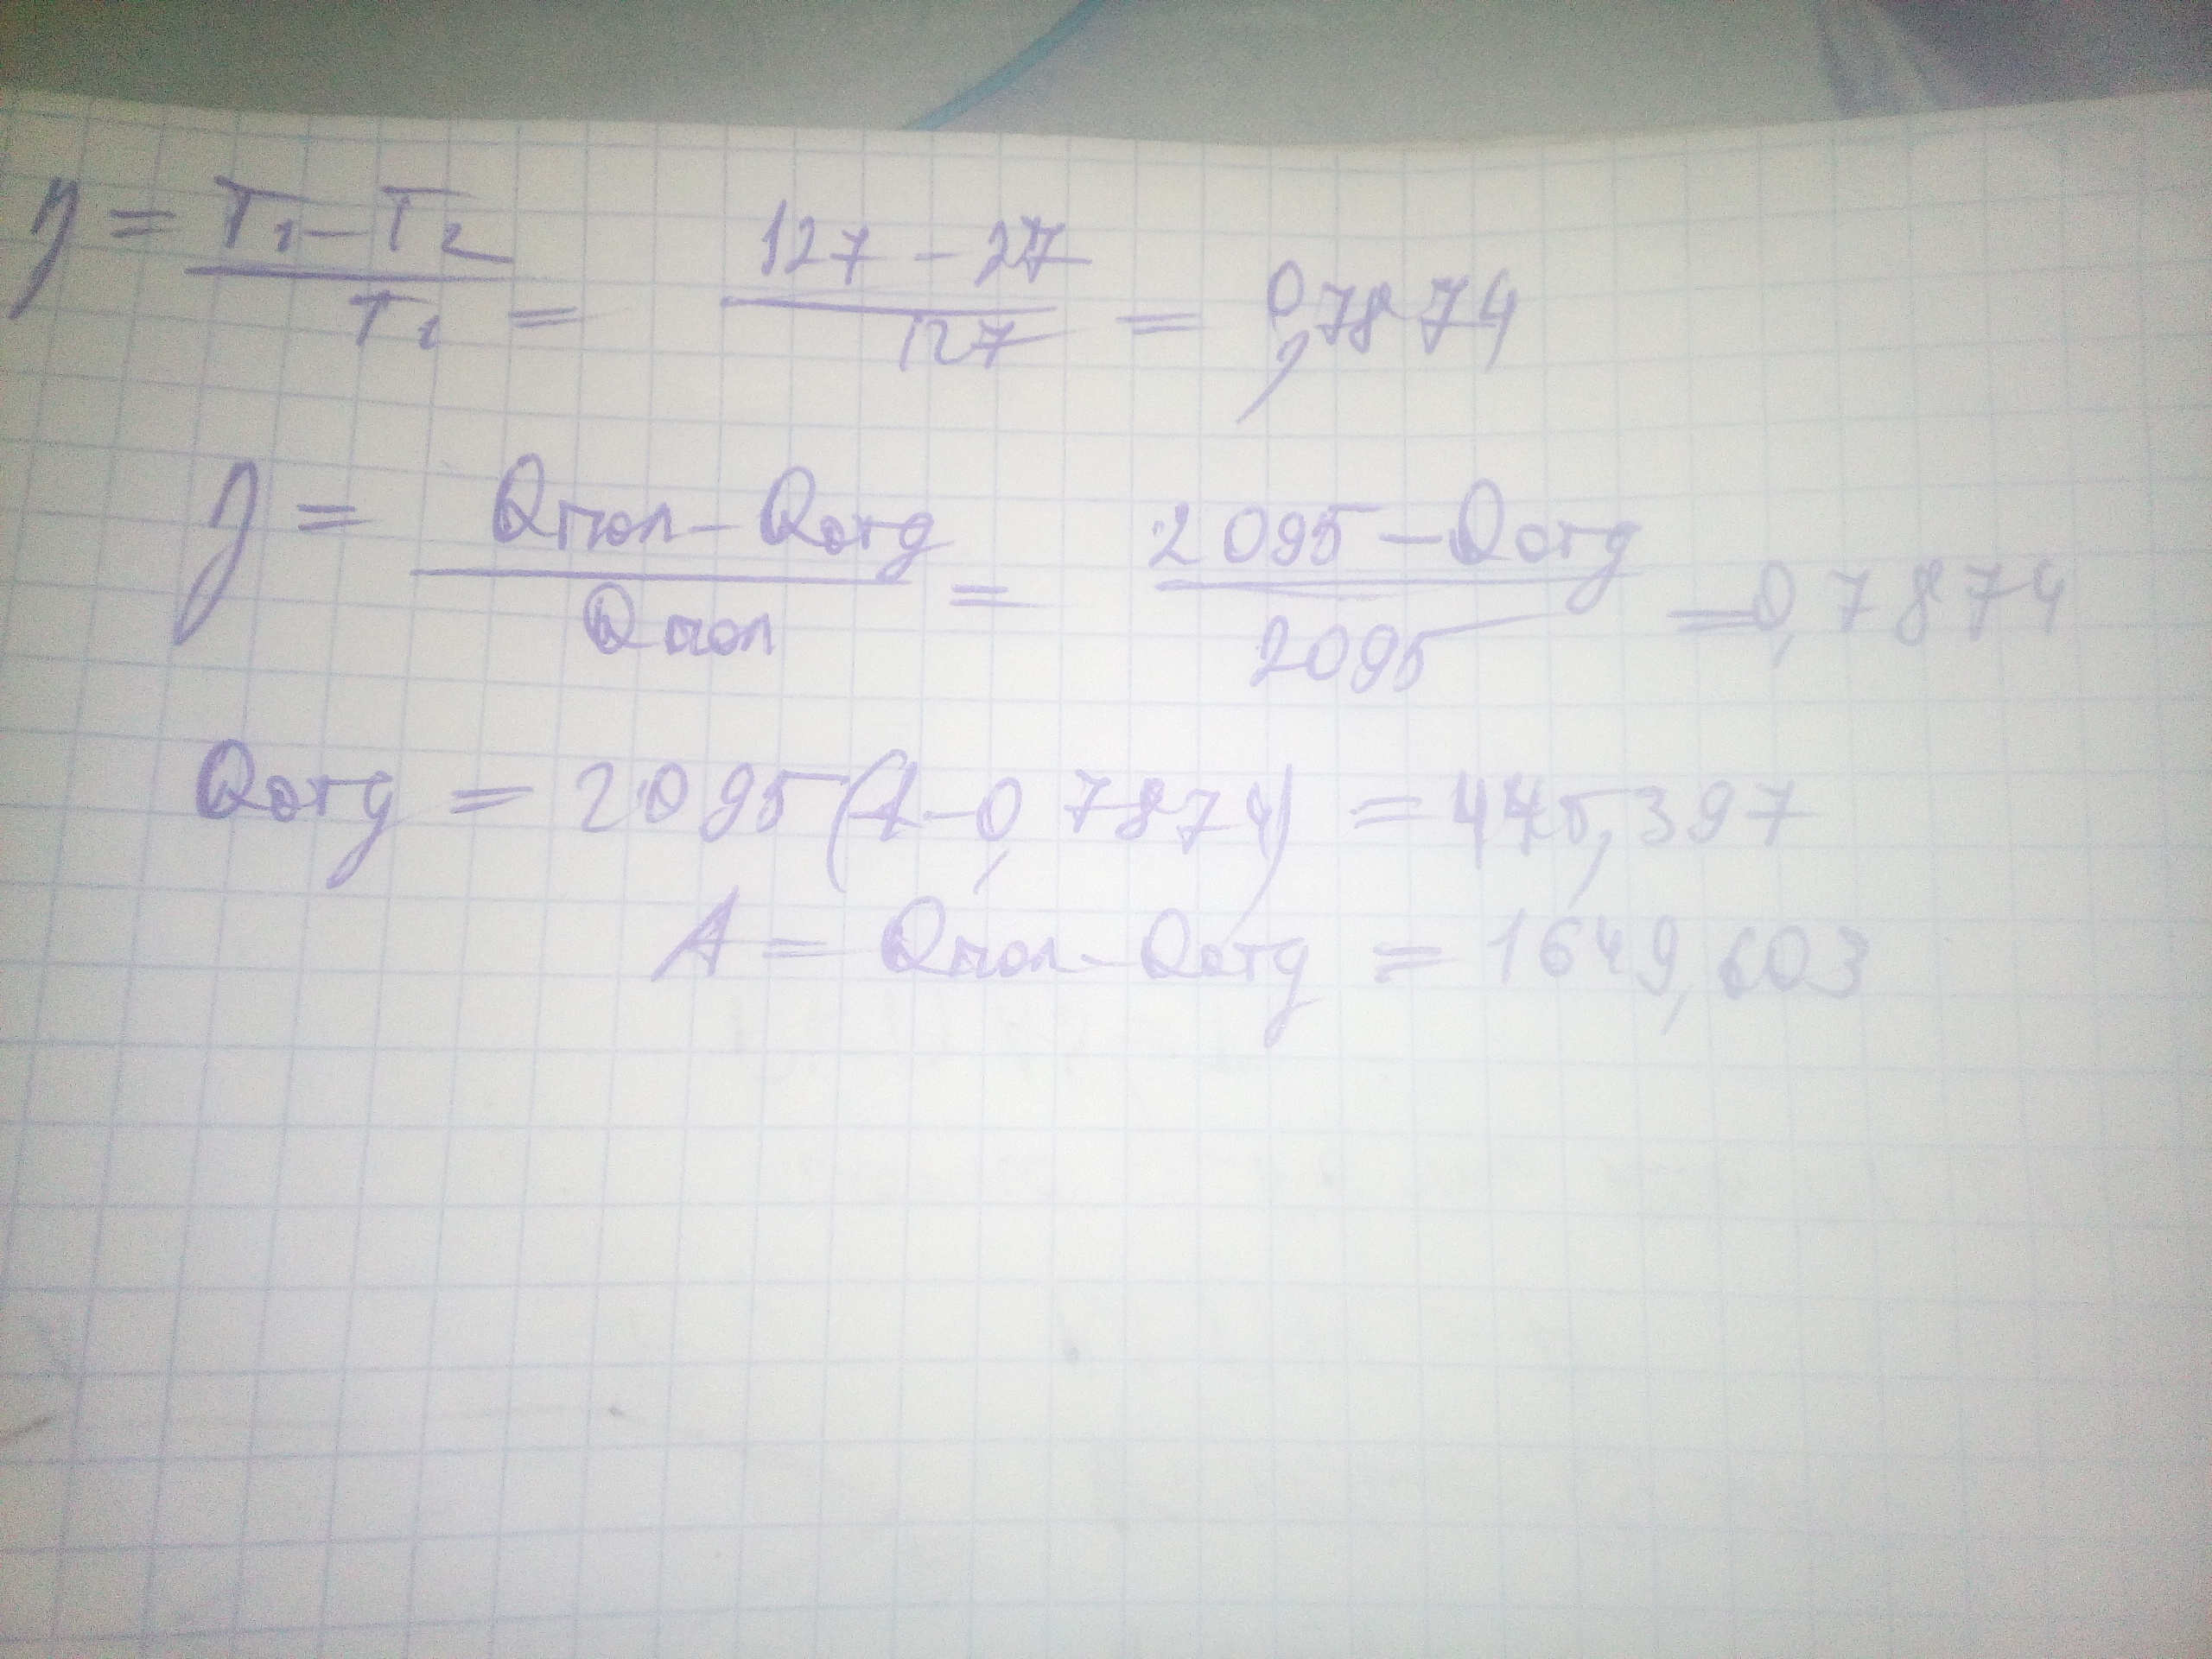 η = (T₁ – T₂) / T₁ = (127 – 27) / 127 = 0,7874
η = (Qпол – Qотд) / Qпол = (2095 – Qотд) / 2095 = 0,7874
Qотд = 2095 (1 – 0,7874) = 445,397
A = Qпол – Qотд = 1649,603